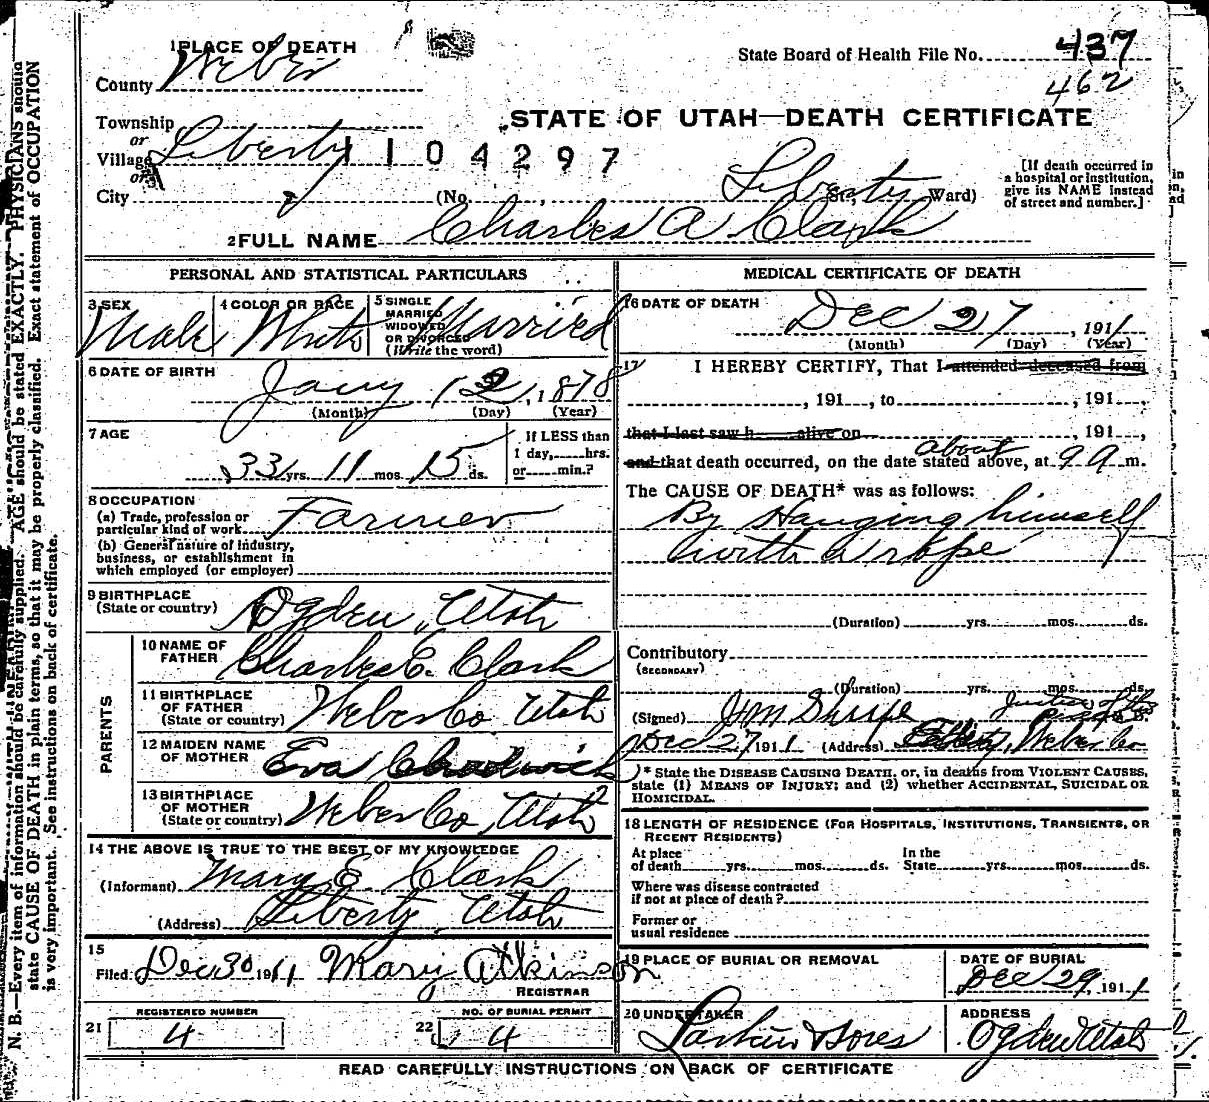 1 PLACE OF DEATH
County Weber
State Board of Health File No. 437
462
STATE OF UTAH—DEATH CERTIFICATE
Township
or
Village Liberty
or
1104297
City
(No. St., Liberty Ward)
[If death occurred in
a hospital or institution,
give its NAME instead
of street and number.]
2 FULL NAME Charles A Clark
PERSONAL AND STATISTICAL PARTICULARS
3 SEX Male
4 COLOR OR RACE White
5 SINGLE
MARRIED
WIDOWED
OR DIVORCED
(Write the word) Married
6 DATE OF BIRTH
Jany 12, 1878
(Month) (Day) (Year)
7 AGE
33 yrs. 11 mos. 15 ds.
If LESS than
1 day, hrs.
or min.?
8 OCCUPATION
(a) Trade, profession or
particular kind of work Farmer
(b) General nature of industry,
business, or establishment in
which employed (or employer)
9 BIRTHPLACE
(State or country) Ogden, Utah
PARENTS
10 NAME OF
FATHER Charles E. Clark
11 BIRTHPLACE
OF FATHER
(State or country) Weber Co Utah
12 MAIDEN NAME
OF MOTHER Eva Chadwick
13 BIRTHPLACE
OF MOTHER
(State or country) Weber Co, Utah
14 THE ABOVE IS TRUE TO THE BEST OF MY KNOWLEDGE
(Informant) Mary E. Clark
(Address) Liberty, Utah
15
Filed Dec 30 1911 Mary Atkinson
REGISTRAR
REGISTERED NUMBER
21 4
NO. OF BURIAL PERMIT
22 4
MEDICAL CERTIFICATE OF DEATH
16 DATE OF DEATH
Dec 27, 1911
(Month) (Day) (Year)
17 I HEREBY CERTIFY, That I attended deceased from
, 191 , to , 191 ,
that I last saw h alive on , 191 ,
and that death occurred, on the date stated above, at about 9 A m.
The CAUSE OF DEATH* was as follows:
By Hanging himself
with a rope
(Duration) yrs. mos. ds.
Contributory
(SECONDARY)
(Duration) yrs. mos. ds.
(Signed) Justice of the
Peace
Dec 27, 1911 (Address) Liberty, Weber Co
* State the DISEASE CAUSING DEATH, or, in deaths from VIOLENT CAUSES,
state (1) MEANS OF INJURY; and (2) whether ACCIDENTAL, SUICIDAL OR
HOMICIDAL.
18 LENGTH OF RESIDENCE (FOR HOSPITALS, INSTITUTIONS, TRANSIENTS, OR
RECENT RESIDENTS)
At place
of death yrs. mos. ds.
In the
State yrs. mos. ds.
Where was disease contracted
if not at place of death?
Former or
usual residence
19 PLACE OF BURIAL OR REMOVAL
DATE OF BURIAL
Dec 29, 1911
20 UNDERTAKER
Larkin & Sons
ADDRESS
Ogden Utah
READ CAREFULLY INSTRUCTIONS ON BACK OF CERTIFICATE
N. B.—Every item of information should be carefully supplied. AGE should be stated EXACTLY. PHYSICIANS should
state CAUSE OF DEATH in plain terms, so that it may be properly classified. Exact statement of OCCUPATION
is very important. See instructions on back of certificate.